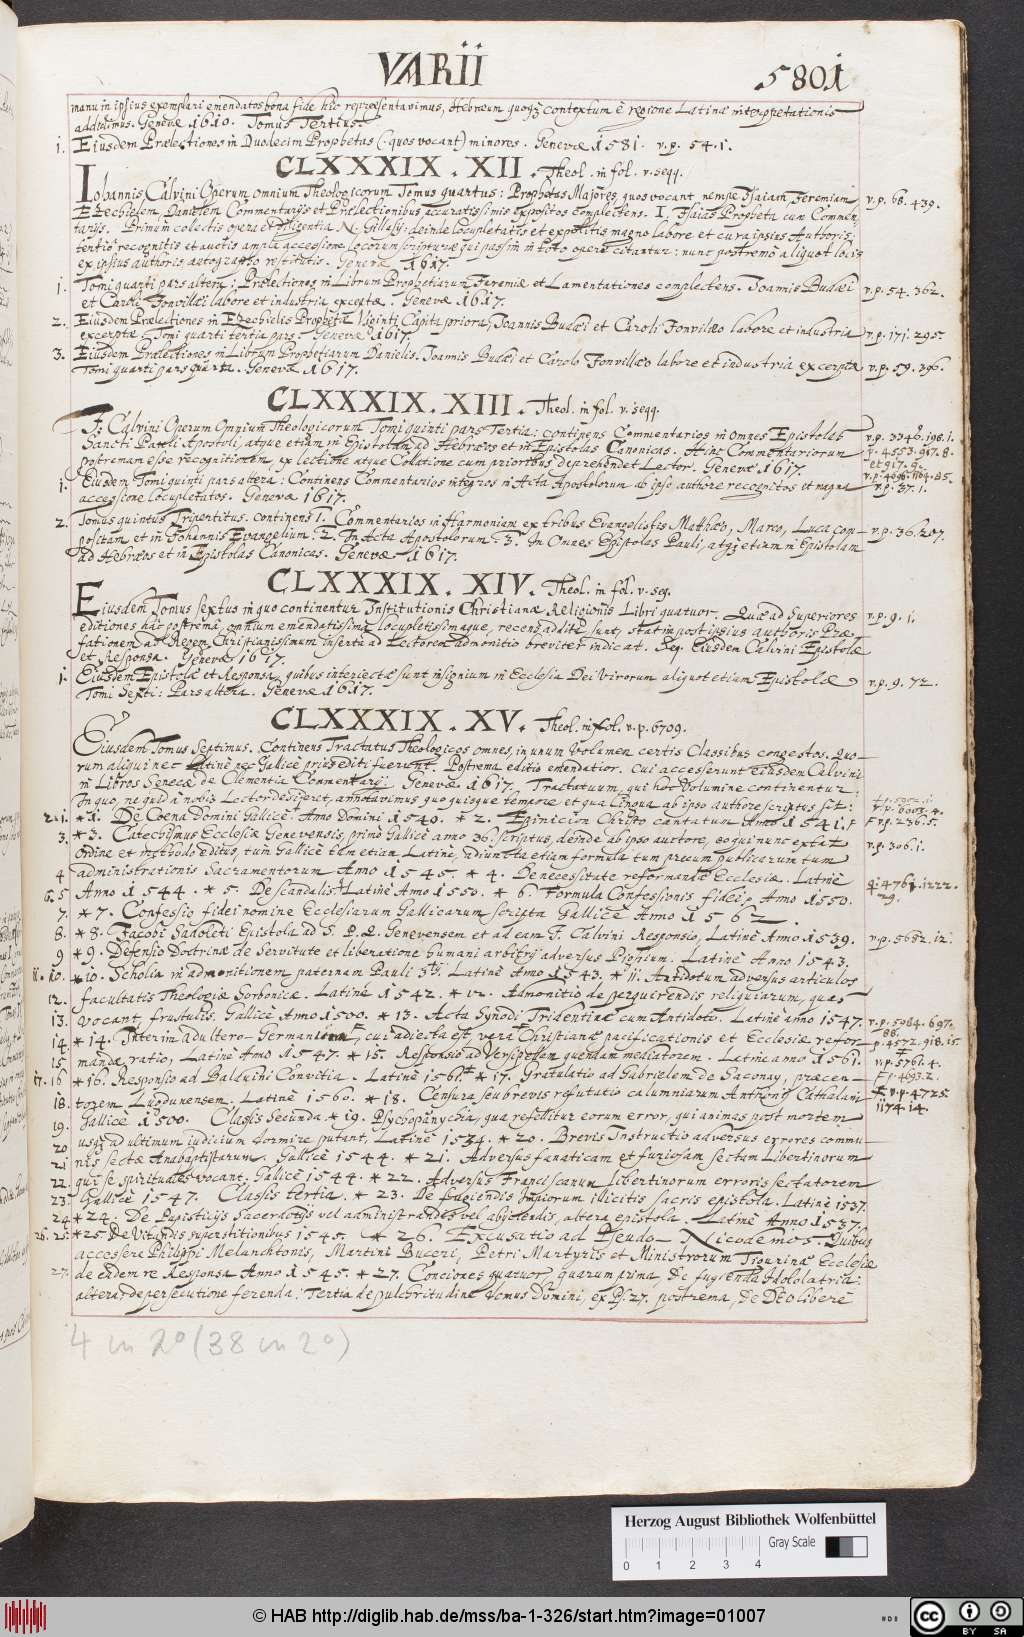 VARII 5801
manu in ipsius exemplari emendatos bona fide hic repræsentavimus, Hebræum quoq; contextum è regione Latinæ interpretationis
addidimus. Genevæ 1610. Tomus Tertius.
1. Ejusdem Prælectiones in Duodecim Prophetas (quos vocant) minores. Genevæ 1581. v.p. 54.1.
CLXXXIX. XII. Theol. in fol. v. seqq.
Iohannis Calvini Operum omnium Theologicorum Tomus quartus: Prophetas Majores, quos vocant nempe Jsaiam Jeremiam v.p. 68. 439.
Ezechielem, Danielem Commentarijs et Prælectionibus accuratissimis expositos complectens. I. Jsaias Propheta cum Commen-
tarijs. Primum collectis opera et diligentia N. Gallasij: deinde locupletatis et expolitis magno labore et cura ipsius Authoris,
tertiò recognitis et auctis ampla accessione locorum scripturæ qui passim in toto opere citantur: nunc postremò aliquot locis
ex ipsius authoris autographo restitutis. Genevæ 1617.
1. Tomi quarti pars altera: Prælectiones in Librum Prophetiarum Jeremiæ et Lamentationes complectens. Joannis Budæi v.p. 54. 362.
et Caroli Jonvillæi labore et industria exceptæ. Genevæ 1617.
2. Ejusdem Prælectiones in Ezechielis Prophetæ Viginti Capita priora, Joannis Budæi et Caroli Jonvillæo labore et industria v.p. 171. 295.
excerptæ Tomi quarti tertia pars. Genevæ 1617.
3. Ejusdem Prælectiones in Librum Prophetiarum Danielis. Joannis Budæi et Carolo Jonvillæo labore et industria excerpta v.p. 59. 396.
Tomi quarti pars quarta. Genevæ 1617.
CLXXXIX. XIII. Theol. in fol. v. seqq.
J. Calvini Operum Omnium Theologicorum Tomi quinti pars Tertia: continens Commentarios in omnes Epistolas v.p. 3346. 198. 1.
Sancti Pauli Apostoli, atque etiam in Epistolam ad Hebræos et in Epistolas Canonicas. Hinc Commentariorum v. 4553. 967. 8.
postremam esse recognitionem, ex lectione atque Collatione cum prioribus deprehendet Lector. Genevæ 1617. et 917. 9.
1. Ejusdem Tomi quinti pars altera: Continens Commentarios integros in Acta Apostolorum ab ipso authore recognitos et magna v.p. 4696. 1104. 85.
accessione locupletatos. Genevæ 1617. v.p. 37. 1.
2. Tomus quintus Tripertitus. continens 1. Commentarios in Harmoniam ex tribus Evangelistis Matthæo, Marco, Luca com- v.p. 36. 207.
positam et in Johannis Evangelium: 2. In Acta Apostolorum: 3. In Omnes Epistolas Pauli, atq; etiam in Epistolam
ad Hebræos et in Epistolas Canonicas. Genevæ 1617.
CLXXXIX. XIV. Theol. in fol. v. seq.
Ejusdem Tomus sextus in quo continentur Institutionis Christianæ Religionis Libri quatuor. Quæ ad superiores v.p. 9. 1.
editiones hac postrema, omnium emendatissima, locupletissimaque, recens addita sunt, stat im post ipsius authoris Præ-
fationem ad Regem Christianissimum inserta ad Lectorem admonitio breviter indicat. Seq. Ejusdem Calvini Epistolæ
et Responsa. Genevæ 1617.
1. Ejusdem Epistolæ et Responsa, quibus interjectæ sunt insignium in Ecclesia Dei Virorum aliquot etiam Epistolæ v.p. 9. 72.
Tomi Sexti: Pars altera. Genevæ 1617.
CLXXXIX. XV. Theol. in fol. v.p. 6709.
Ejusdem Tomus Septimus. Continens Tractatus Theologicos omnes, in unum Volumen certis Classibus congestos. Quo-
rum aliqui nec Latinè nec Gallicè prius editi fuerunt. Postrema editio emendatior. cui accesserunt ejusdem Calvini
in Libros Senecæ de Clementia Commentarij. Genevæ 1617. Tractatuum, qui hoc Volumine continentur:
In quo, ne quid à nobis Lector desideret, annotavimus quo quisque tempore et qua Lingua ab ipso authore scriptus sit:
2. 1. * 1. De Coena Domini Gallicè. Anno Domini 1540. * 2. Epinicion Christo cantatum Anno 1541. † † v.p. 236. 5.
3. * 3. Catechismus Ecclesiæ Genevensis, primò Gallicè anno 36. scriptus, deinde ab ipso auctore, eo qui nunc extat v.p. 306. 1.
Ordine et methodo editus, tum Gallicè tum etiam Latinè, adjuncta etiam formula tum precum publicarum tum
4 administrationis Sacramentorum Anno 1545. * 4. De necessitate reformandæ Ecclesiæ. Latinè
6. 5 Anno 1544. * 5. De scandalis Latinè Anno 1550. * 6. Formula Confessionis fidei, Anno 1550. 4761. 1222. 29.
7. * 7. Confessio fidei nomine Ecclesiarum Gallicarum scripta Gallicè Anno 1562.
8. * 8. Jacobi Sadoleti Epistola ad S. P. Q. Genevensem et ad eam J. Calvini Responsio, Latinè Anno 1539. v.p. 5682. 12.
9 * 9. Defensio Doctrinæ de Servitute et liberatione humani arbitrij adversus Pighium. Latinè Anno 1543.
11. 10. * 10. Scholia in admonitionem paternam Pauli 3tij. Latinè Anno 1543. * 11. Antidotum adversus articulos
12. facultatis Theologiæ Sorbonicæ. Latinè 1542. * 12. Admonitio de perquirendis reliquiarum, quas
13. vocant, frustulis. Gallicè Anno 1500. * 13. Acta Synodi Tridentinæ cum Antidoto. Latinè anno 1547. v.p. 5984. 697.
14. * 14. Interim adultero-Germanicum, cui adjecta est, vera Christianæ pacificationis et Ecclesiæ refor- p. 4572. 918. 15.
15 mandæ ratio, Latinè Anno 1547. * 15. Responsio ad Versipellem quendam mediatorem. Latinè anno 1561. v.p. 5761. 4.
17. 16 * 16. Responsio ad Balduini Convitia. Latinè 1561. * 17. Gratulatio ad Gabrielem de Saconay, præcen-
18. torem Lugdunensem. Latinè 1560. * 18. Censura seu brevis refutatio calumniarum Anthonij Cathalani v.p. 4725.
19. Gallicè 1500. Classis Secunda. * 19. Psychopanychia, qua refellitur eorum error, qui animas post mortem 1174. 14.
20 usq; ad ultimum judicium dormire putant, Latinè 1534. * 20. Brevis Instructio adversus errores commu-
21 nis sectæ Anabaptistarum. Gallicè 1544. * 21. Adversus fanaticam et furiosam sectam Libertinorum
22. qui se spirituales vocant. Gallicè 1544. * 22. Adversus Franciscanum Libertinorum erroris sectatorem
23. Gallicè 1547. Classis tertia. * 23. De fugiendis Impiorum illicitis sacris epistola. Latinè 1537.
24 * 24. De Papisticijs Sacerdotijs vel administrandis vel abjiciendis, altera epistola. Latinè Anno 1537.
26. 25. * 25 De Vitandis superstitionibus 1545. * 26. Excusatio ad Pseudo-Nicodemos. Quibus
accessere Philippi Melanchtonis, Martini Buceri, Petri Martyris et Ministrorum Tigurinæ Ecclesiæ
27. de eadem re Responsa Anno 1545. * 27. Conciones quatuor quarum prima, de fugienda Idololatria:
altera, de persecutione ferenda: Tertia de pulchritudine Domus Domini, ex Ps. 27. postrema, de Deo liberè
4 in 2° (38 in 2°)
Herzog August Bibliothek Wolfenbüttel
Gray Scale
0 1 2 3 4
© HAB http://diglib.hab.de/mss/ba-1-326/start.htm?image=01007
cc BY SA